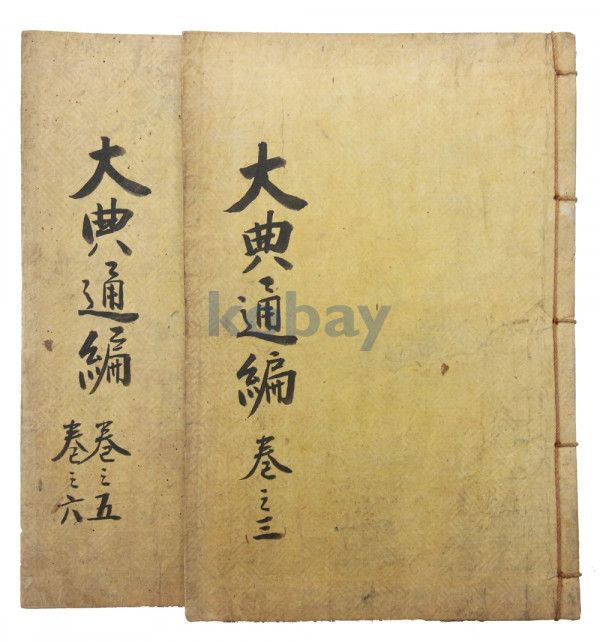 大典通編 卷之三
大典通編 卷之五
卷之六
kobay